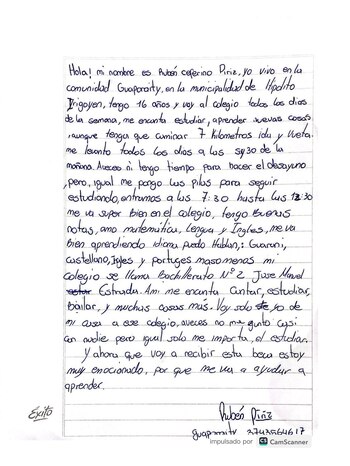 Hola! mi nombre es Rubén ceferino Piriz, yo vivo en la
comunidad Guaporaity, en la municipalidad de Hipólito
Irigoyen, tengo 16 años y voy al colegio todos los dias
de la semana, me encanta estudiar, aprender nuevas cosas
,aunque tenga que caminar 7 kilometros ida y vuelta.
me levanto todos los dias a las 5y30 de la
mañana. Aveces ni tengo tiempo para hacer el desayuno
,pero, igual me pongo las pilas para seguir
estudiando, entramos a las 7:30 hasta las 12:30
me va super bien en el colegio, tengo buenas
notas, amo matemática, Lengua y Ingles, me va
bien aprendiendo idioma puedo Hablar,: Guarani,
castellano, Ingles y portuges masomenos mi
colegio se llama Bachillerato Nº2 Jose Manuel
Estrada. Ami me encanta Cantar, estudiar,
bailar, y muchas cosas más. Voy solo yo de
mi casa a ese colegio, aveces no me junto casi
con nadie pero igual solo me importa, el estudiar.
Y ahora que voy a recibir esta beca estoy
muy emocionado, por que me va a ayudar a
aprender.
Éxito
Rubén Piriz
impulsado por CS CamScanner